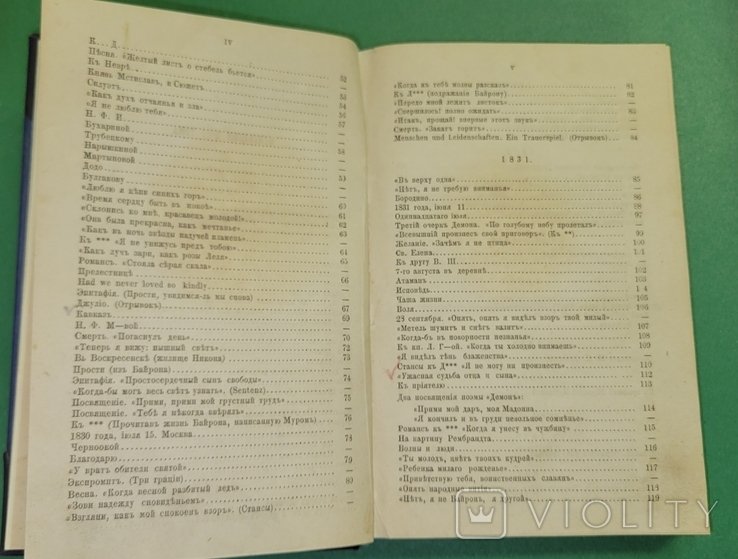 IV
К. Д.
Пѣсня. «Желтый листъ о стебель бьется» 52
Къ Неэрѣ —
Князь Мстиславъ, и Сюжетъ 53
Силуэтъ 54
«Какъ духъ отчаянья и зла» —
«Я не люблю тебя» 56
Н. Ф. И. 57
Бухариной —
Трубецкому —
Нарышкиной 58
Мартыновой —
Додо —
Булгакову 59
«Люблю я цѣпи синихъ горъ» —
«Время сердцу быть въ покоѣ» 60
«Склонись ко мнѣ, красавецъ молодой!» 61
«Она была прекрасна, какъ мечтанье» 62
«Какъ въ ночь звѣзды падучей пламень» 63
Къ *** «Я не унижусь предъ тобою» —
«Какъ лучъ зари, какъ розы Леля» 64
Романсъ. «Стояла сѣрая скала» 65
Прелестницѣ —
Had we never loved so kindly 66
Эпитафія. (Прости, увидимся-ль мы снова) —
Джуліо. (Отрывокъ) 67
Кавказъ 69
Н. Ф. М—вой 70
Смерть. «Погаснулъ день» —
«Теперь я вижу: пышный свѣтъ» 72
Въ Воскресенскѣ (жилище Никона) 73
Прости (изъ Байрона) —
Эпитафія. «Простосердечный сынъ свободы» 74
«Когда-бы могъ весь свѣтъ узнать». (Sentenz) —
Посвященіе. «Прими, прими мой грустный трудъ» 75
Посвященіе. «Тебѣ я нѣкогда ввѣрялъ» —
Къ *** (Прочитавъ жизнь Байрона, написанную Муромъ) 76
1830 года, іюля 15. Москва —
Черноокой 78
Благодарю —
«У вратъ обители святой» 79
Экспромптъ. (Три граціи) —
Весна. «Когда весной разбитый ледъ» 80
«Зови надежду сновидѣньемъ» —
«Взгляни, какъ мой спокоенъ взоръ». (Стансы) —
V
«Когда къ тебѣ молвы разсказъ» 81
Къ Л*** (подражаніе Байрону) 82
«Передо мной лежитъ листокъ» —
«Свершилось! полно ожидать» 83
«Итакъ, прощай! впервые этотъ звукъ» —
Смерть. «Закатъ горитъ» —
Menschen und Leidenschaften. Ein Trauerspiel. (Отрывокъ) 84
1831.
«Въ верху одна» 85
«Нѣтъ, я не требую вниманья» —
Бородино 86
1831 года, іюня 11 88
Одиннадцатаго іюля 97
Третій очеркъ Демона. «По голубому небу пролеталъ» —
«Всевышній произнесъ свой приговоръ». (Къ **) 99
Желаніе. «Зачѣмъ я не птица» 100
Св. Елена 101
Къ другу В. Ш. —
7-го августа въ деревнѣ 102
Атаманъ —
Исповѣдь 1 4
Чаша жизни 105
Воля 106
28 сентября. «Опять, опять я видѣлъ взоръ твой милый» —
«Метель шумитъ и снѣгъ валитъ» 107
«Когда-бъ въ покорности незнанья» 108
Къ кн. Л. Г—ой. «Когда ты холодно внимаешь» 109
«Я видѣлъ тѣнь блаженства» —
Стансы къ Д*** «Я не могу ни произнесть» 110
«Ужасная судьба отца и сына» 112
Къ пріятелю 113
Два посвященія поэмы «Демонъ»:
«Прими мой даръ, моя Мадонна 114
«Я кончилъ и въ груди невольное сомнѣнье» —
Романсъ къ *** «Когда я унесу въ чужбину» 115
На картину Рембрандта —
Волны и люди 116
«Ты молодъ, цвѣтъ твоихъ кудрей» —
«Ребенка милаго рожденье» 117
«Привѣтствую тебя, воинственныхъ славянъ» —
«Опять народные витіи» 118
«Нѣтъ, я не Байронъ, я другой» 119
VIOLITY